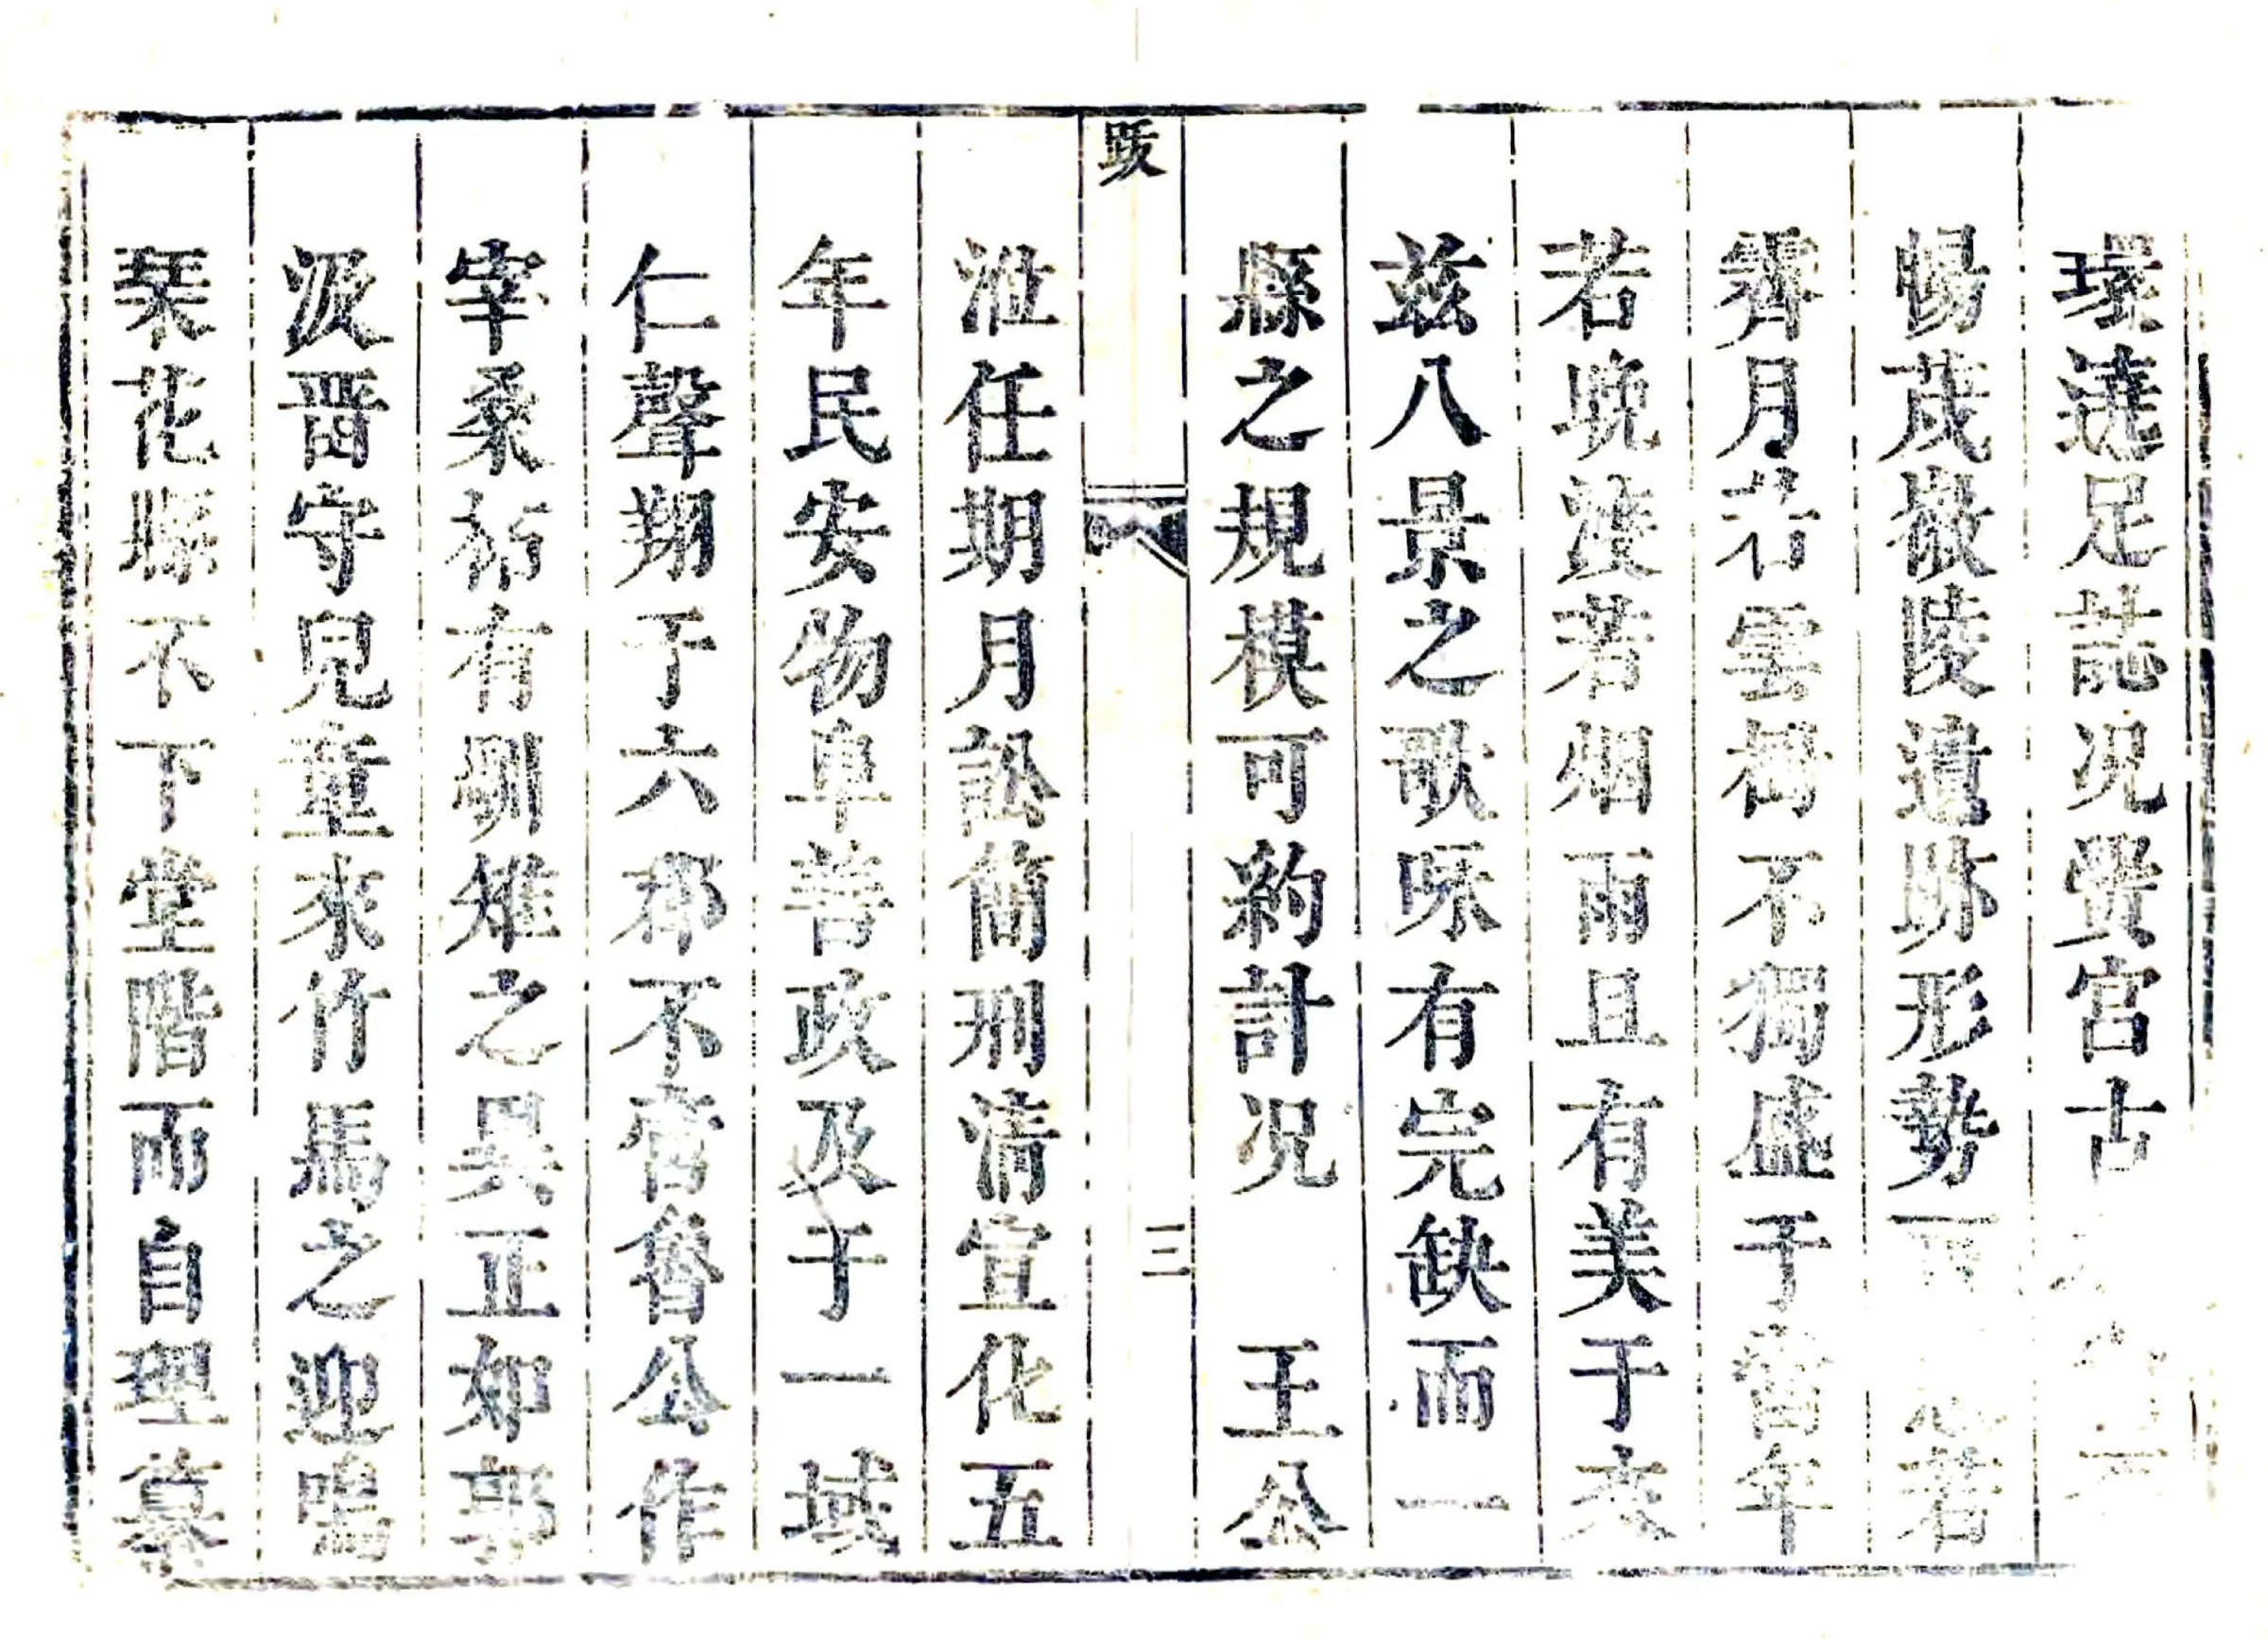 環遶足誌况黌宫古
暢茂嶶陵遺跡形勢 若
霽月若雲樹不獨盛于當年
若晚渡若烟雨且有美于
茲八景之歌咏有完缺而一
縣之規模可約計况 王公
跋
三
涖任期月訟簡刑清宣化五
年民安物阜善政及于一域
仁聲翔于六郡不啻魯公作
宰桑 有馴雉之異正如郭
汲晋守兒童來竹馬之迎鳴
琹花縣不下堂階而自理慕